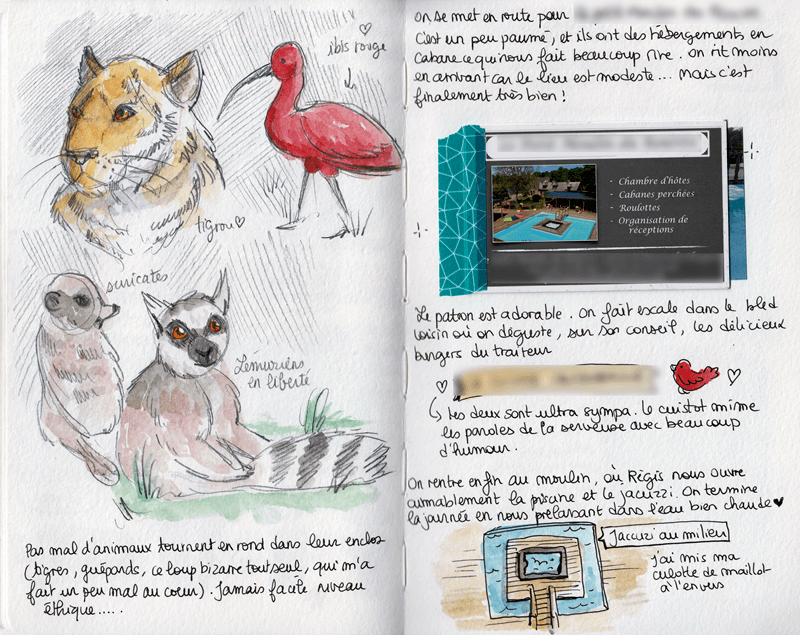 ibis rouge
tigrou
suricates
Lémuriens
en liberté
Pas mal d'animaux tournent en rond dans leur enclos
(tigres, guépards, ce loup bizarre tout seul, qui m'a
fait un peu mal au coeur). Jamais facile niveau
éthique.....
On se met en route pour
C'est un peu paumé, et ils ont des hébergements en
cabane ce qui nous fait beaucoup rire. On rit moins
en arrivant car le lieu est modeste... Mais c'est
finalement très bien !
- Chambre d'hôtes
- Cabanes perchées
- Roulottes
- Organisation de
réceptions
Le patron est adorable. On fait escale dans le bled
voisin où on déguste, sur son conseil, les délicieux
burgers du traiteur
Les deux sont ultra sympa. Le cuistot mime
les paroles de la serveuse avec beaucoup
d'humour.
On rentre enfin au moulin, où Régis nous ouvre
aimablement la piscine et le jacuzzi. On termine
la journée en nous prélassant dans l'eau bien chaude
Jacuzzi au milieu
j'ai mis ma
culotte de maillot
à l'envers